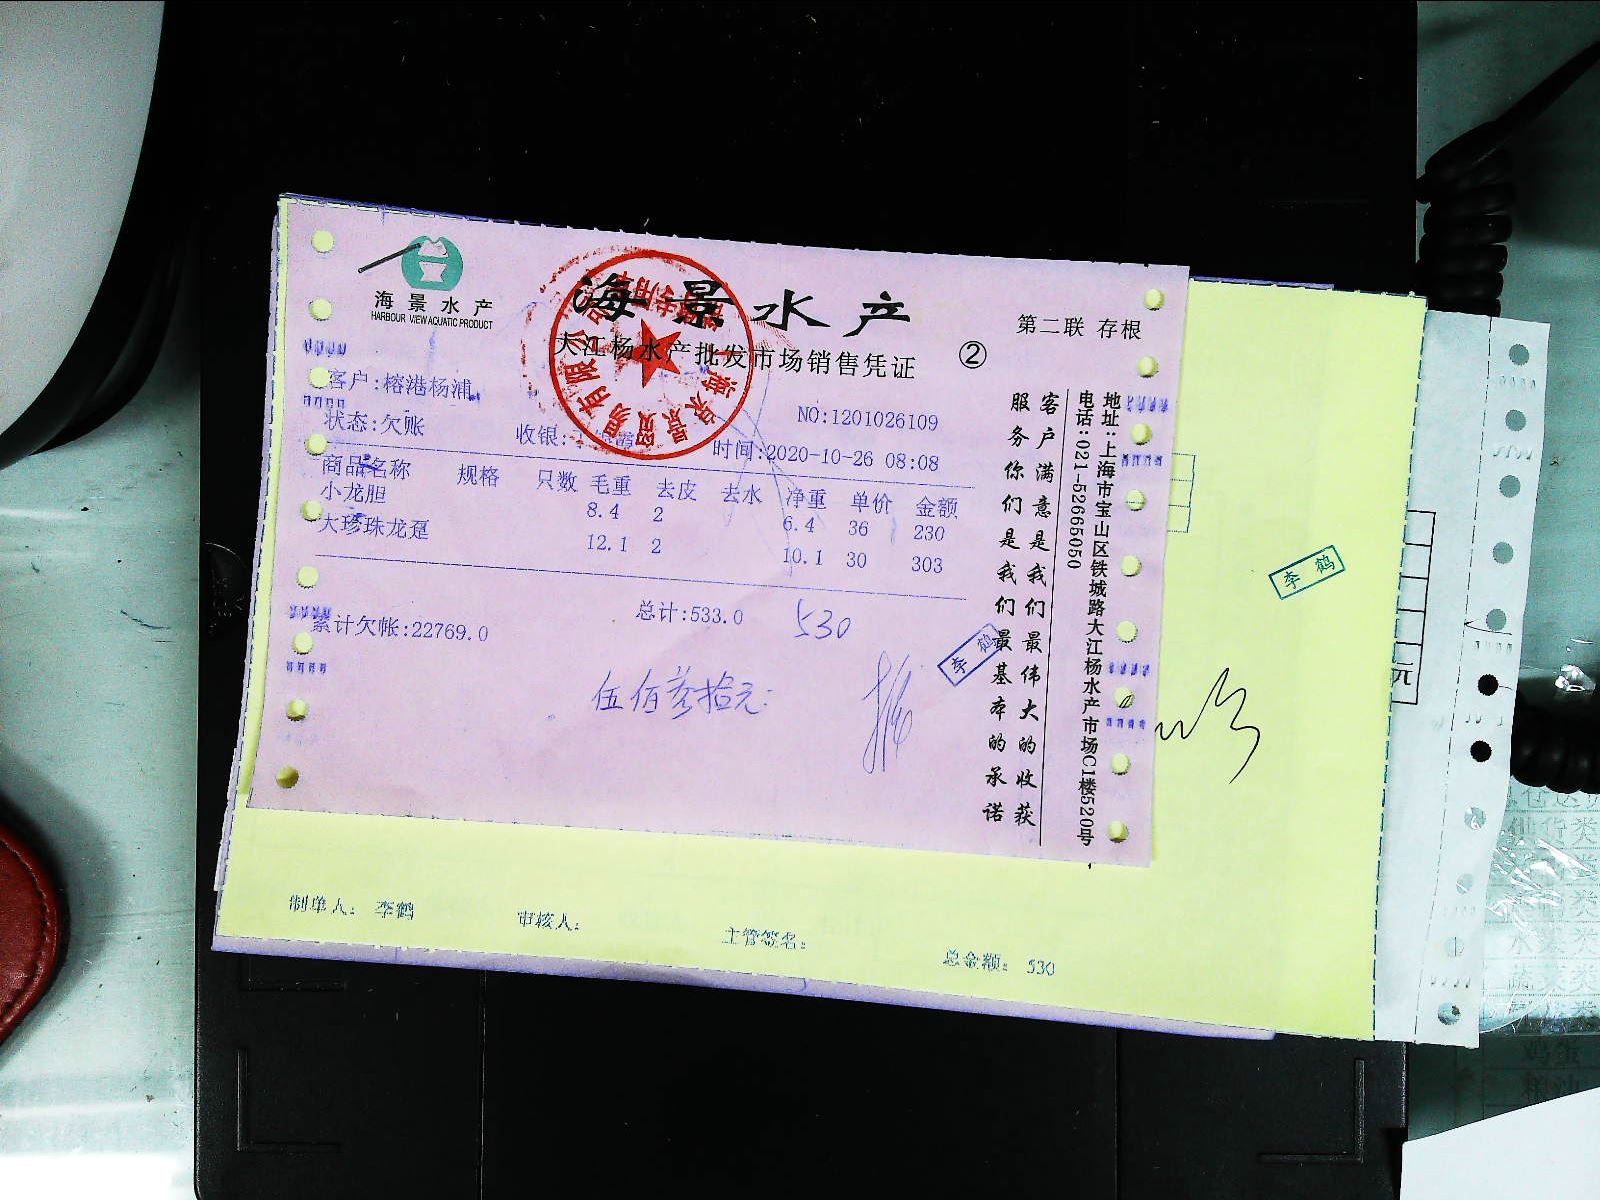 海景水产
HARBOUR VIEW AQUATIC PRODUCT
海景水产
大江杨水产批发市场销售凭证
②
第二联 存根
客户:榕港杨浦
NO:1201026109
状态:欠账
收银:
时间:2020-10-26 08:08
商品名称 规格 只数 毛重 去皮 去水 净重 单价 金额
小龙胆 8.4 2 6.4 36 230
大珍珠龙趸 12.1 2 10.1 30 303
累计欠帐:22769.0
总计:533.0
530
伍佰叁拾元
李鹤
客户满意是我们最伟大的收获
服务你们是我们最基本的承诺
地址:上海市宝山区铁城路大江杨水产市场C1楼520号
电话:021-52665050
李鹤
元
制单人: 李鹤
审核人:
主管签名:
总金额: 530
供货类